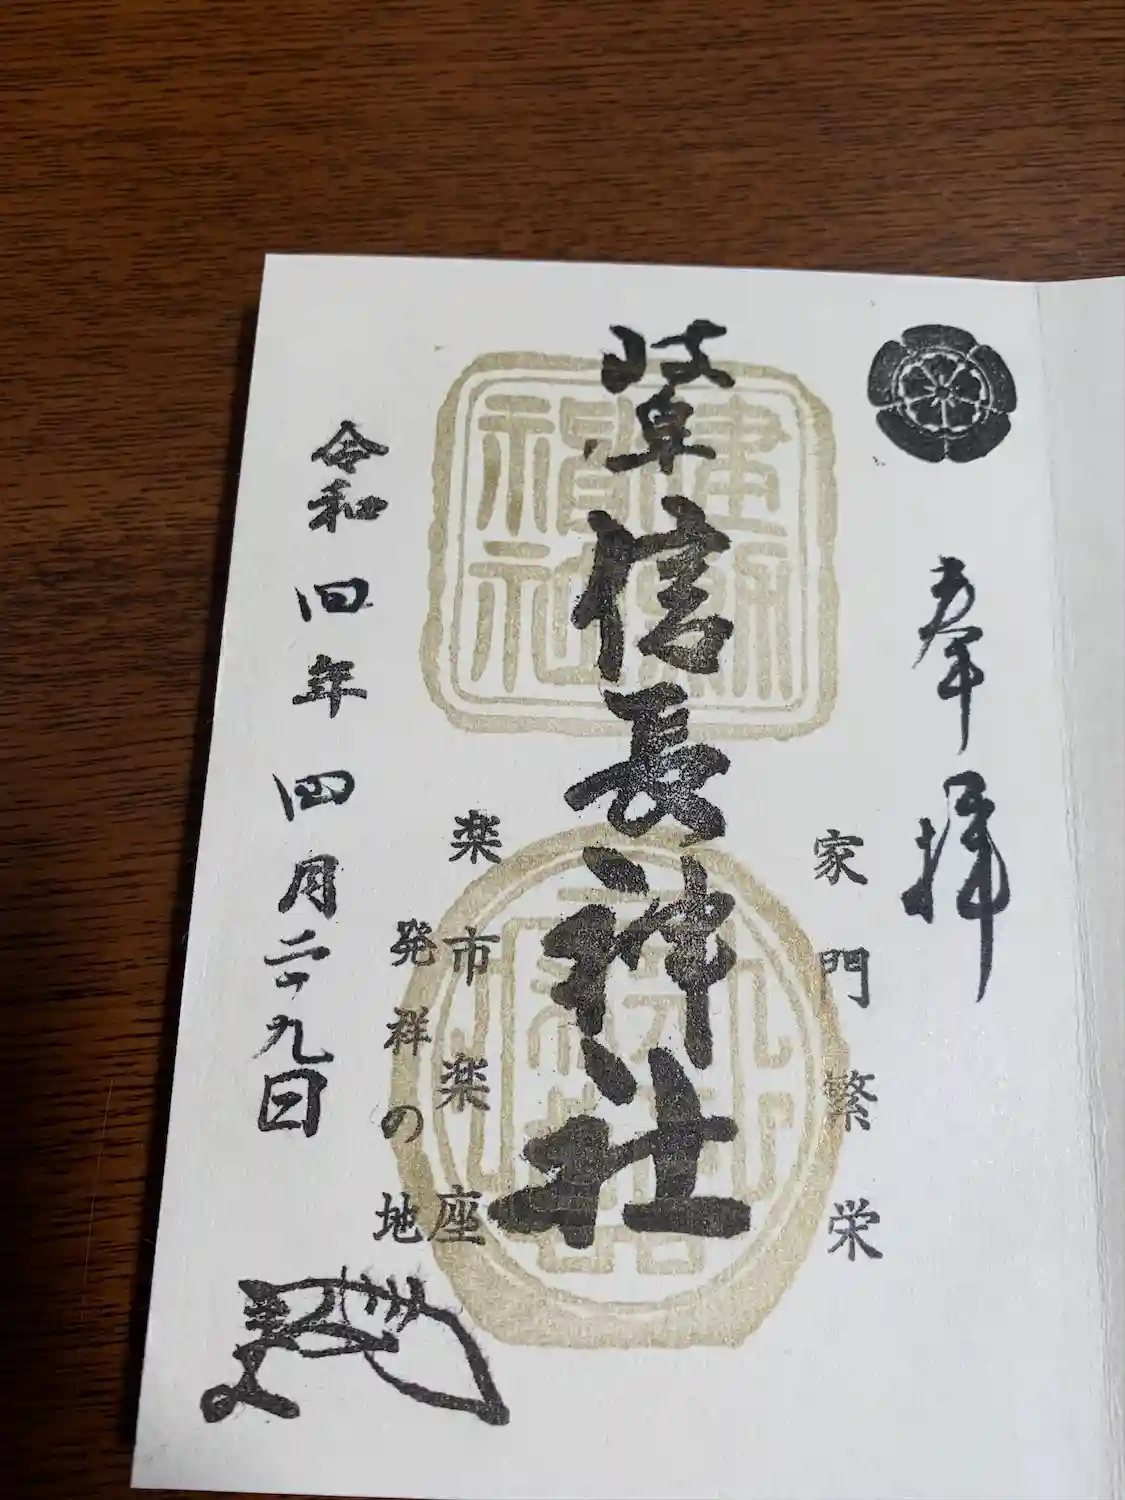 奉拝
家門繁栄
岐阜信長神社
建勲
稲荷
楽市楽座
発祥の地
令和四年四月二十九日